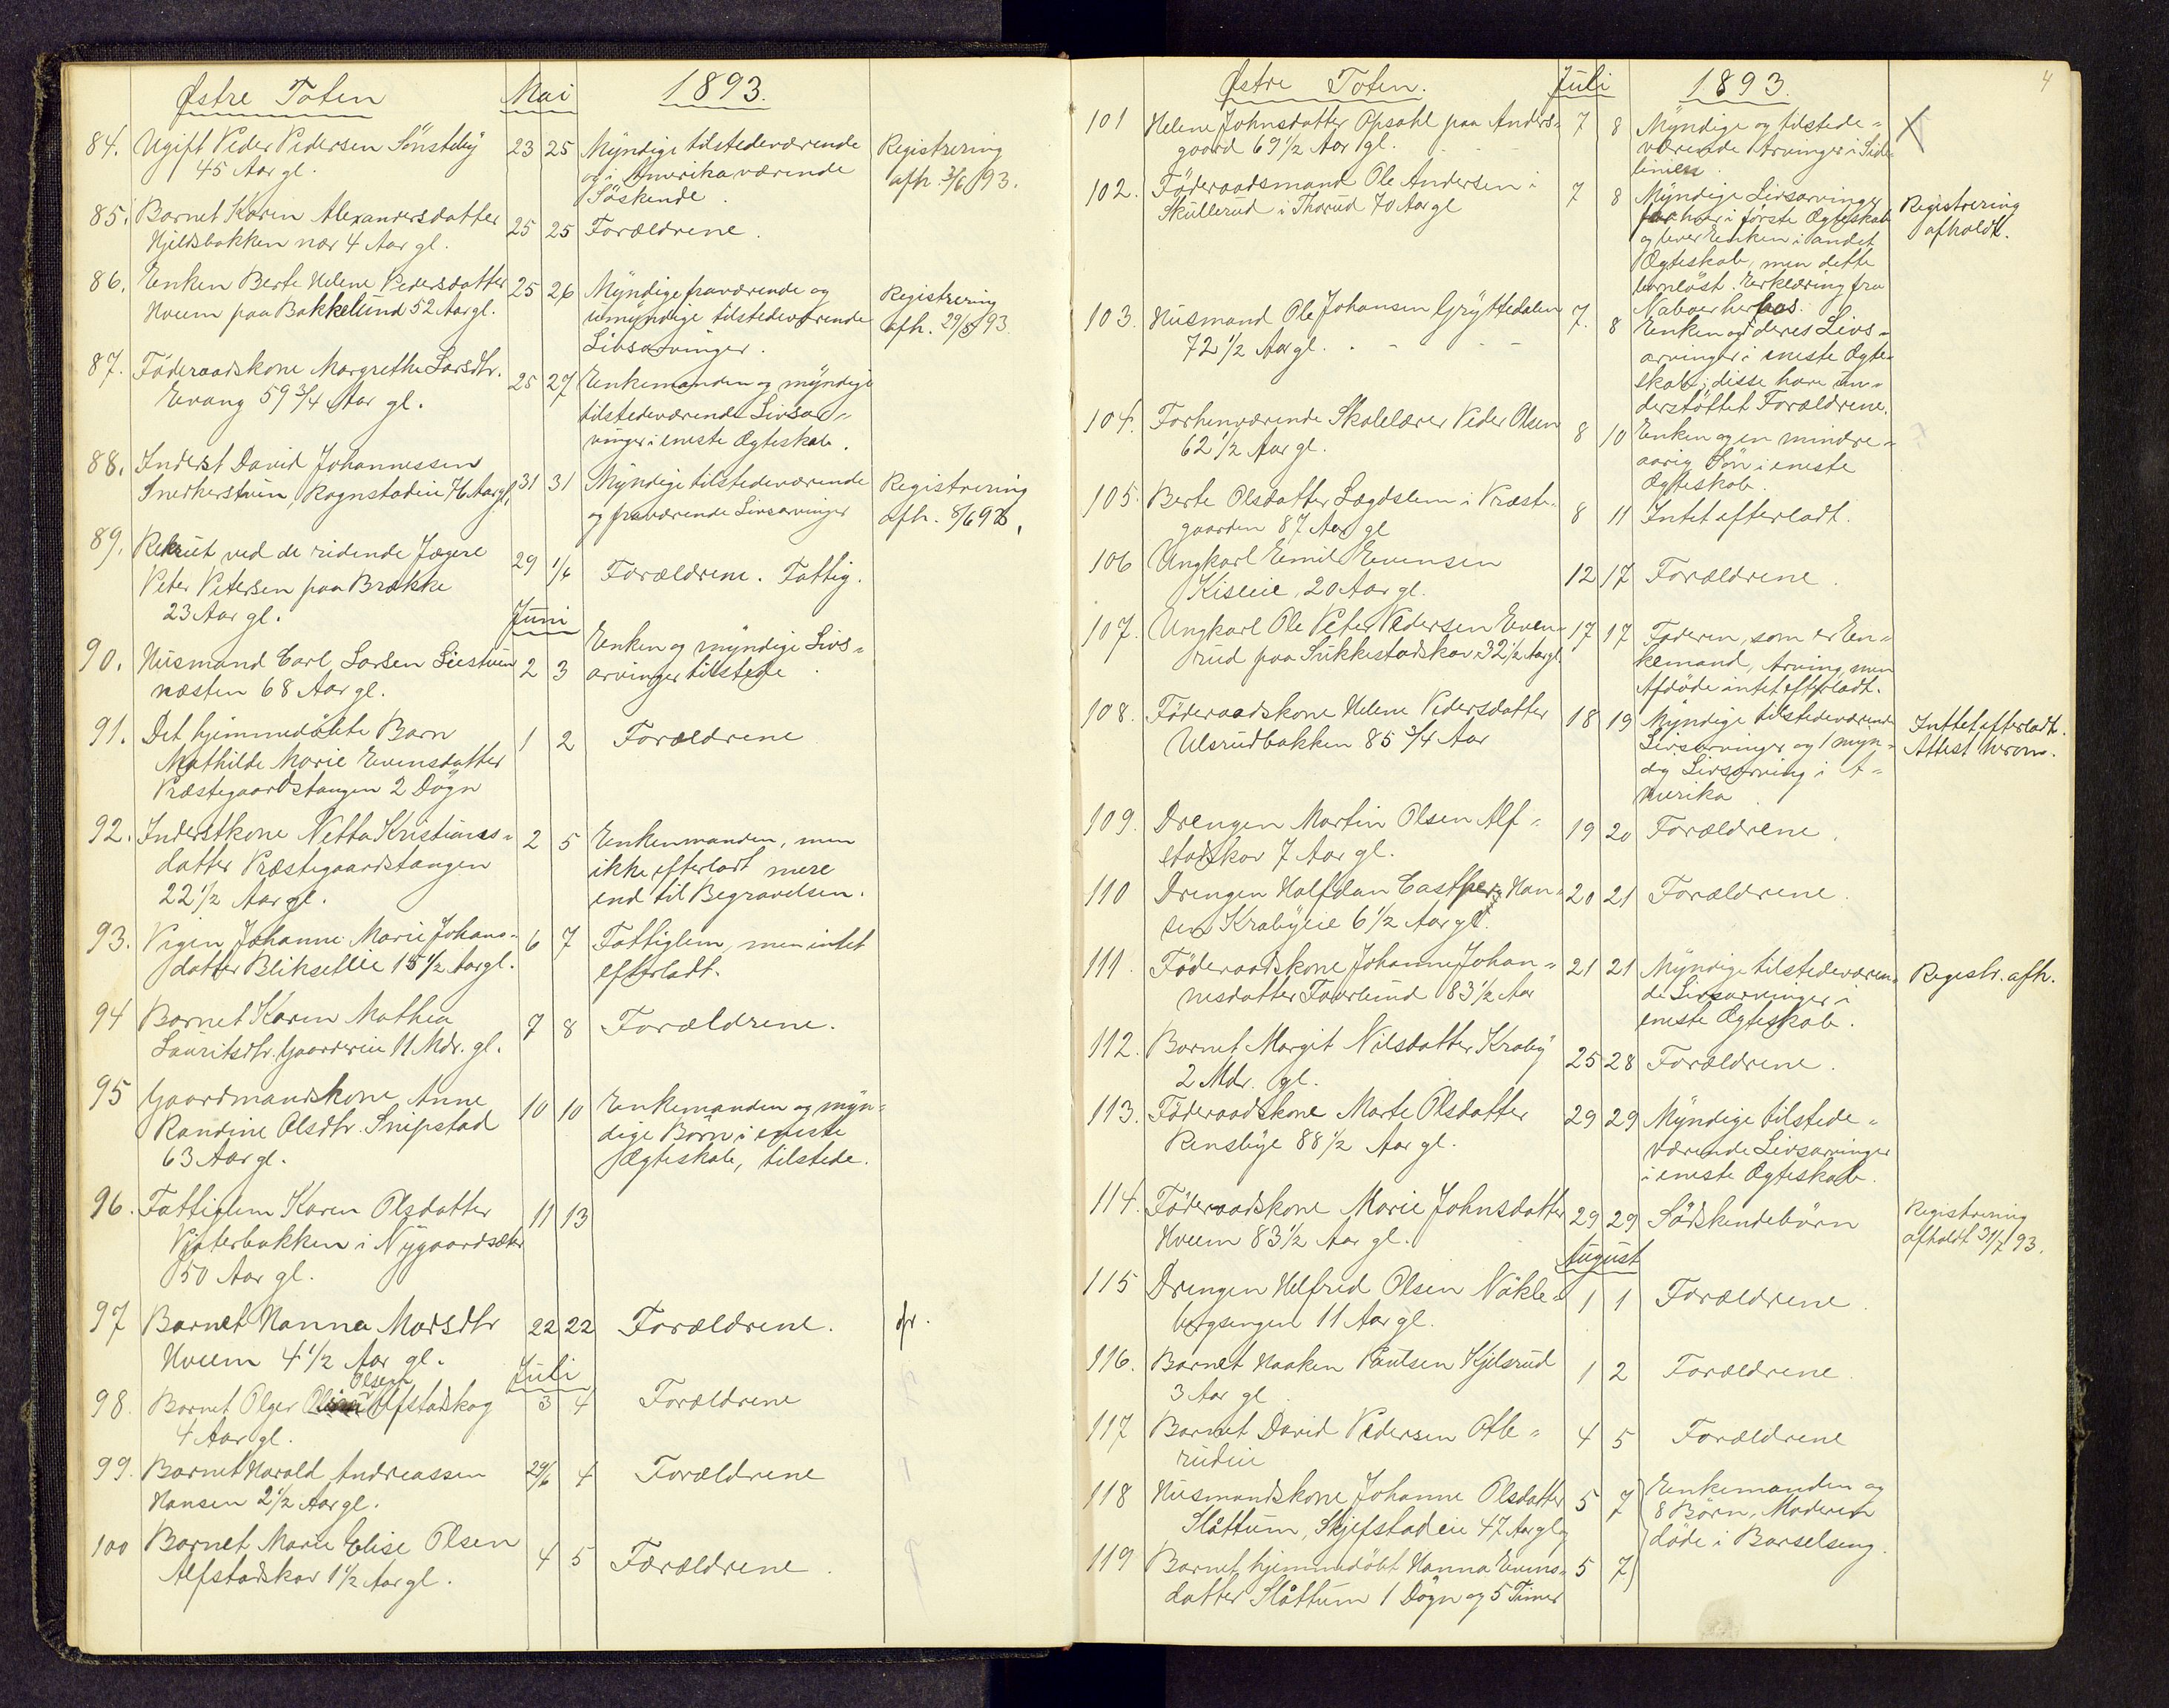 Østre Toten Mai 1893.
84. Ugift Peder Pedersen Sönsteby 23 25 Myndige tilstedeværende Registrering
45 Aar gl. og i Amerika værende afh. 3/6 93.
Söskende.
85. Barnet Karen Alexandersdatter 25 25 Forældrene.
Hjeldsbakken nær 4 Aar gl.
86. Enken Berte Helene Pedersdatter 25 26 Myndige fraværende og Registrering
Hveem paa Bakkelund 52 Aar gl. umyndige tilstedeværende afh. 29/5 93.
Livsarvinger.
87. Föderaadskone Margrethe Larsdtr. 25 27 Enkemanden og myndige
Evang 59 3/4 Aar gl. tilstedeværende Livsar-
vinger i eneste Ægteskab.
88. Inderst David Johannessen 31 31 Myndige tilstedeværende Registrering
Snerkerstuen, Rognstadeie 76 Aar gl. og fraværende Livsarvinger afh. 8/6 93.
89. Rekrut ved de ridende Jægere 29 1/6 Forældrene. Fattig.
Peter Petersen paa Brække
23 Aar gl.
Juni
90. Husmand Carl Larsen Liestuen 2 3 Enken og myndige Livs-
næsten 68 Aar gl. arvinger tilstede.
91. Det hjemmedöbte Barn 1 2 Forældrene
Mathilde Marie Evensdatter
Præstegaardstangen 2 Dögn
92. Inderstkone Netta Kristians- 2 5 Enkemanden, men
datter Præstegaardstangen ikke efterladt mere
22 1/2 Aar gl. end til Begravelsen.
93. Pigen Johanne Marie Johans- 6 7 Fattiglem, men intet
datter Blikseteie 15 1/2 Aar gl. efterladt.
94 Barnet Karen Mathea 7 8 Forældrene.
Lauritsdtr. Gaardereie 11 Mdr. gl.
95 Gaardmandskone Anne 10 10 Enkemanden og myn-
Randine Olsdtr. Snipstad dige Börn i eneste
63 Aar gl. Ægteskab, tilstede.
96. Fattiglem Karen Olsdatter 11 13
Vinterbakken i Nygaardsæter
50 Aar gl.
97 Barnet Hanna Marsdtr 22 22 Forældrene.
Hveem 4 1/2 Aar gl.
Juli
Olsen
98. Barnet Olger Alfstadskog 3 4 Forældrene
4 Aar gl.
99. Barnet Harald Andreassen 29/6 4 Forældrene
Hansen 2 1/2 Aar gl.
100 Barnet Marie Elise Olsen 4 5 Forældrene.
Alfstadskov 1 1/2 Aar gl.
Østre Toten. Juli 1893. 4
101 Helene Johnsdatter Opsahl paa Anders- 7 8 Myndige og tilstede- X
gaard 69 1/2 Aar gl. værende Arvinger i Side-
linien.
102. Föderaadsmand Ole Andersen i 7 8 Myndige Livsarvinger Registrering
Skullerud i Thorud 70 Aar gl har han i förste Ægteskab afholdt.
og lever Enken i andet
Ægteskab, men dette
barnlöst. Erklæring fra
Naboer herhos.
103. Husmand Ole Johansen Gryttedalen 7. 8 Enken og deres Livs-
72 1/2 Aar gl. arvinger i eneste Ægte-
skab; disse have un-
derstöttet Forældrene.
104. Forhenværende Skolelærer Peder Olsen 8 10 Enken og en mindre-
62 1/2 Aar gl. aarig Sön i eneste
Ægteskab.
105. Berte Olsdatter Lægdslem i Præste- 8 11 Intet efterladt.
gaarden 87 Aar gl
106 Ungkarl Emil Evensen 12 17 Forældrene.
Kiseeie, 20 Aar gl.
107. Ungkarl Ole Peter Pedersen Even- 17 17 Faderen, som er En-
rud paa Sukkestadskov 32 1/2 Aar gl. kemand, Arving, men
Afdöde intet efterladt.
108. Föderaadskone Helene Pedersdatter 18 19 Myndige tilstedeværende Inttet efterladt.
Ulsrudbakken 85 3/4 Aar Livsarvinger og 1 myn- Attest herom.
dig Livsarving i A-
merika.
109. Drengen Martin Olsen Alf- 19 20 Forældrene.
stadskov 7 Aar gl.
110 Drengen Halfdan Castper Han- 20 21 Forældrene.
sen Krabyeie 6 1/2 Aar gl.
111. Föderaadskone Johanne Johan- 21 21 Myndige tilstedeværen- Registr. afh.
nesdatter Faarlund 83 1/2 Aar de Livsarvinger i
eneste Ægteskab.
112. Barnet Margit Nilsdatter Kraby 25 28 Forældrene.
2 Mdr. gl.
113. Föderaadskone Marte Olsdatter 29 29 Myndige tilstede-
Rensbye 88 1/2 Aar gl. værende Livsarvinger
i eneste Ægteskab.
114. Föderaadskone Marie Johnsdatter 29 29 Södskendebörn Registrering
Hveem 83 1/2 Aar gl. afholdt 31/7 93.
August
115 Drengen Helfred Olsen Näkle- 1 1 Forældrene.
bergsengen 11 Aar gl.
116. Barnet Haaken Paulsen Kjelsrud 1 2 Forældrene.
3 Aar gl.
117 Barnet David Pedersen Ofle- 4 5 Forældrene
rudeie
118 Husmandskone Johanne Olsdatter 5 7 Enkemanden og
Slåttum, Skjefstadeie 47 Aar gl. 8 Börn, Moderen
döde i Barselseng.
119 Barnet hjemmedöbt Hanna Evens- 5 7
datter Slåttum 1 Dögn og 5 Timer